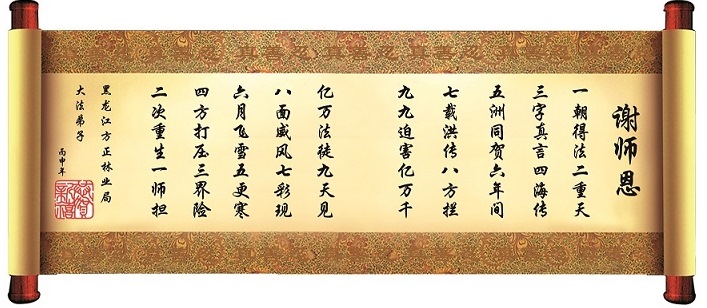 谢师恩
一朝得法二重天
三字真言四海传
五洲同贺六年间
七载洪传八方拦
九九迫害亿万千
亿万法徒九天见
八面威风七彩现
六月飞雪五更寒
四方打压三界险
二次重生一师担
黑龙江方正林业局
大法弟子
丙申年